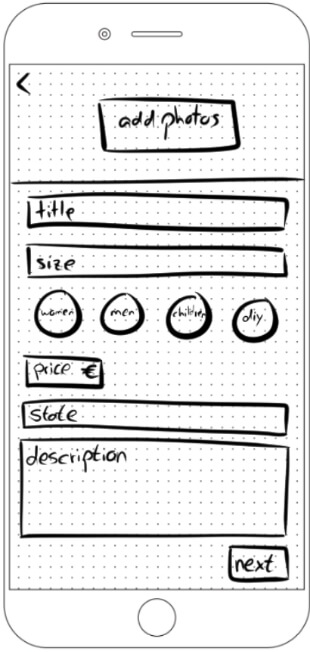 <
add photos
title
size
women men children diy
price €
state
description
next